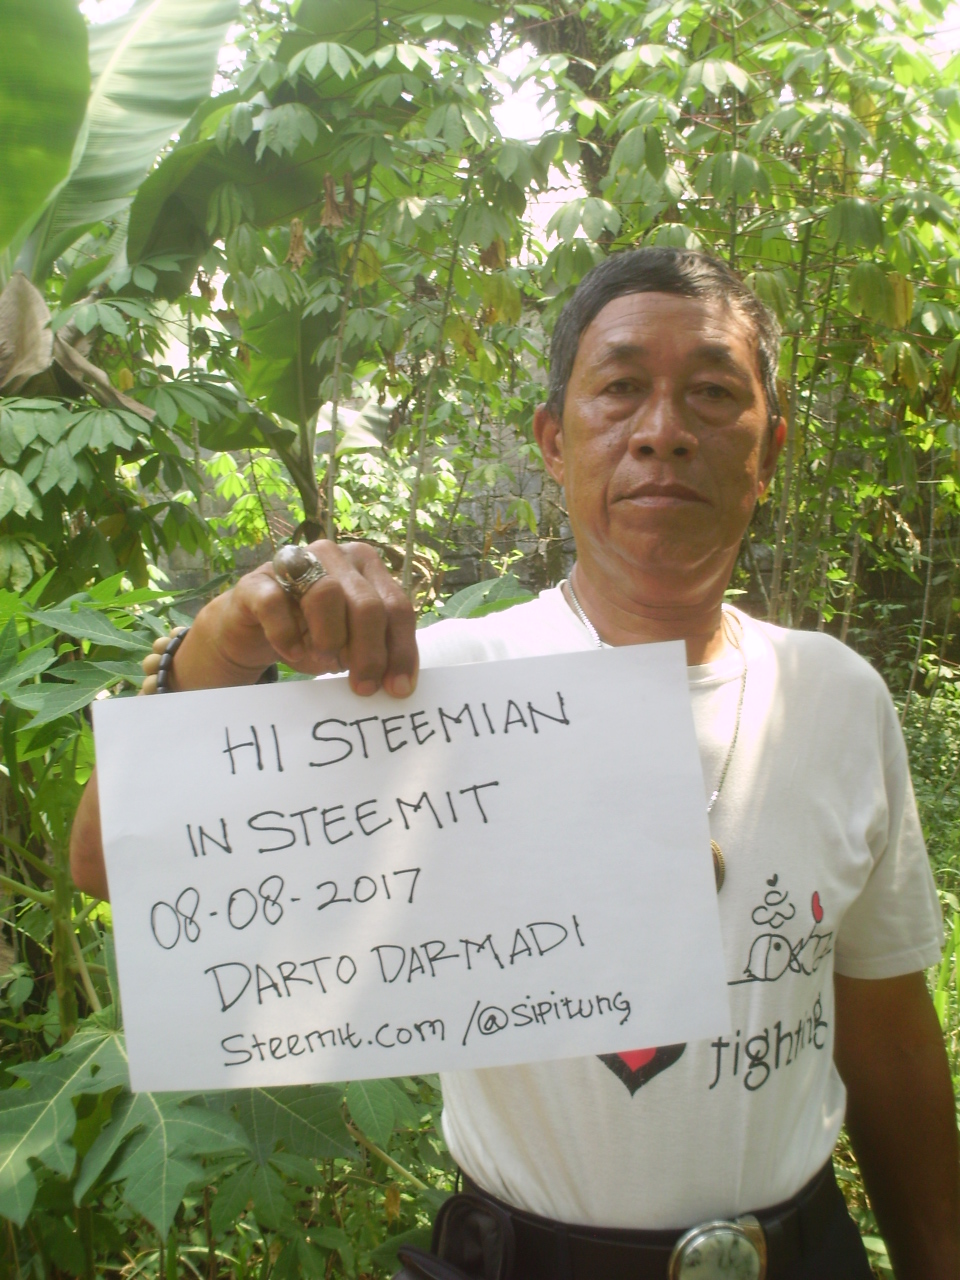 HI STEEMIAN
IN STEEMIT
08-08-2017
DARTO DARMADI
Steemit.com /@sipitung
fighting